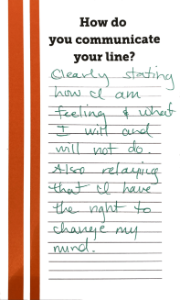 How do
you communicate
your line?
Clearly stating
how I am
feeling & what
I will and
will not do.
Also relaying
that I have
the right to
change my
mind.